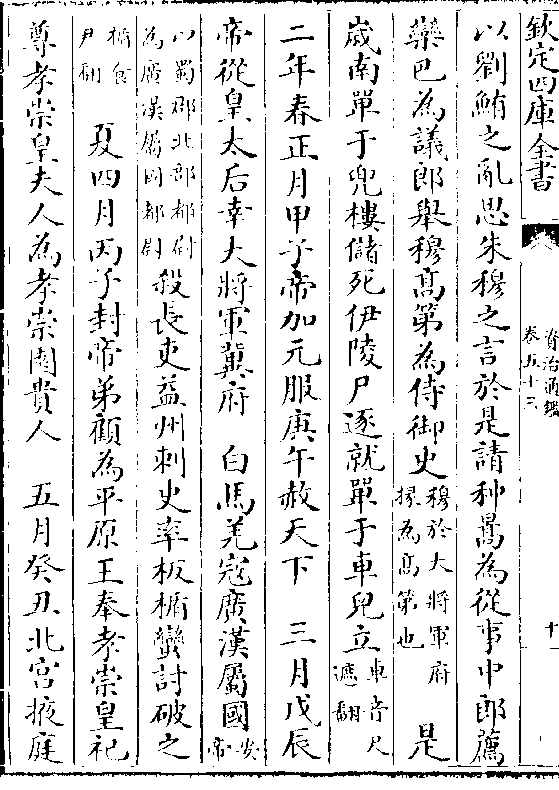 欽定四庫全書
資治通鑑
卷五十三
十一
以劉鮪之亂思朱穆之言於是請种暠為從事中郎薦
欒巴為議郎舉穆高第為侍御史穆於大將軍府掾為高第也是
歲南單于兜樓儲死伊陵尸逐就單于車兒立車音尺遮翻
二年春正月甲子帝加元服庚午赦天下 三月戊辰
帝從皇太后幸大將軍冀府 白馬羌寇廣漢屬國安帝
以蜀郡北部都尉為廣漢屬國都尉殺長吏益州刺史率板楯蠻討破之
楯食尹翻 夏四月丙子封帝弟顧為平原王奉孝崇皇祀
尊孝崇皇夫人為孝崇園貴人 五月癸丑北宮掖庭